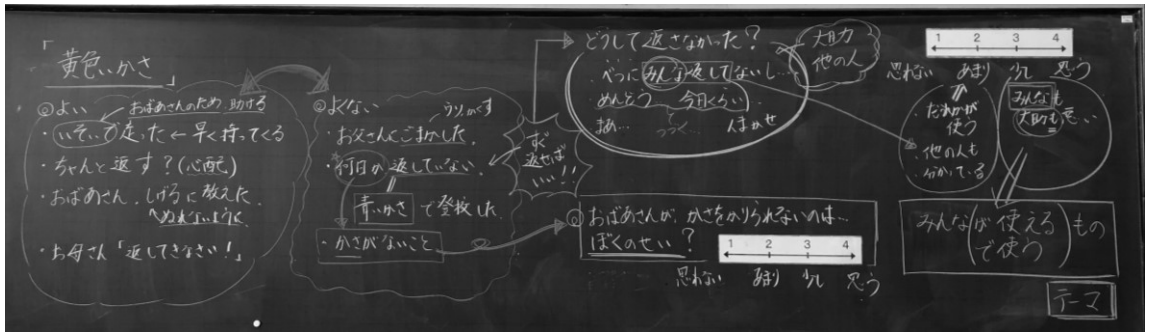 「黄色いかさ」
◎よい
おばあさんのため、助ける
・いそいで走った←早く持ってくる
・ちゃんと返す?(心配)
・おばあさん、しげるに教えた
ぬれないように
・お母さん「返してきなさい!」
◎よくない
・お父さんにごまかした
・何日か返していない
青いかさ で登校した
・かさがないこと
すぐ
返せば
いい!!
どうして返さなかった?
・べつにみんな返してないし…
・めんどう
今日くらい
まあ…
人まかせ
大切
他の人
1 2 3 4
思わない あまり 少し 思う
・だれかが
使う
・他の人も
みんなも
◎おばあさんが、かさをかりられないのは…
ぼくのせい?
1 2 3 4
思わない あまり 少し 思う
みんな(が使える
で使う)もの
テーマ